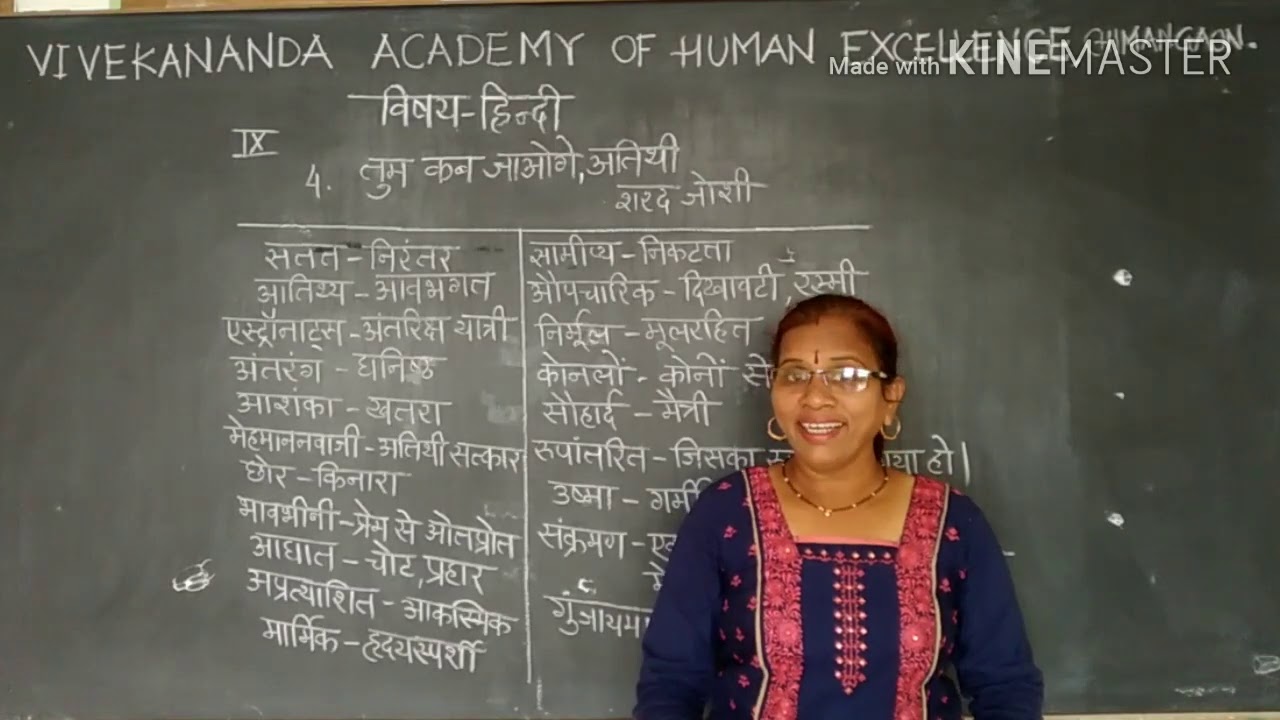 VIVEKANANDA ACADEMY OF HUMAN EXCELLENCE
Made with KINEMASTER
विषय-हिन्दी
IX
4. तुम कब जाओगे, अतिथी
शरद जोशी
सतत - निरंतर
आतिथ्य - आवभगत
एस्ट्रॉनाट्स - अंतरिक्ष यात्री
अंतरंग - घनिष्ठ
आशंका - खतरा
मेहमाननवाजी - अतिथी सत्कार
छोर - किनारा
भावभीनी - प्रेम से ओतप्रोत
आघात - चोट, प्रहार
अप्रत्याशित - आकस्मिक
मार्मिक - हृदयस्पर्शी
सामीप्य - निकटता
औपचारिक - दिखावटी, रस्मी
निर्मूल - मूलरहित
कोनलों - कोनों से
सौहार्द - मैत्री
रुपांतरित - जिसका गया हो।
उष्मा - गर्मी
संक्रमण -